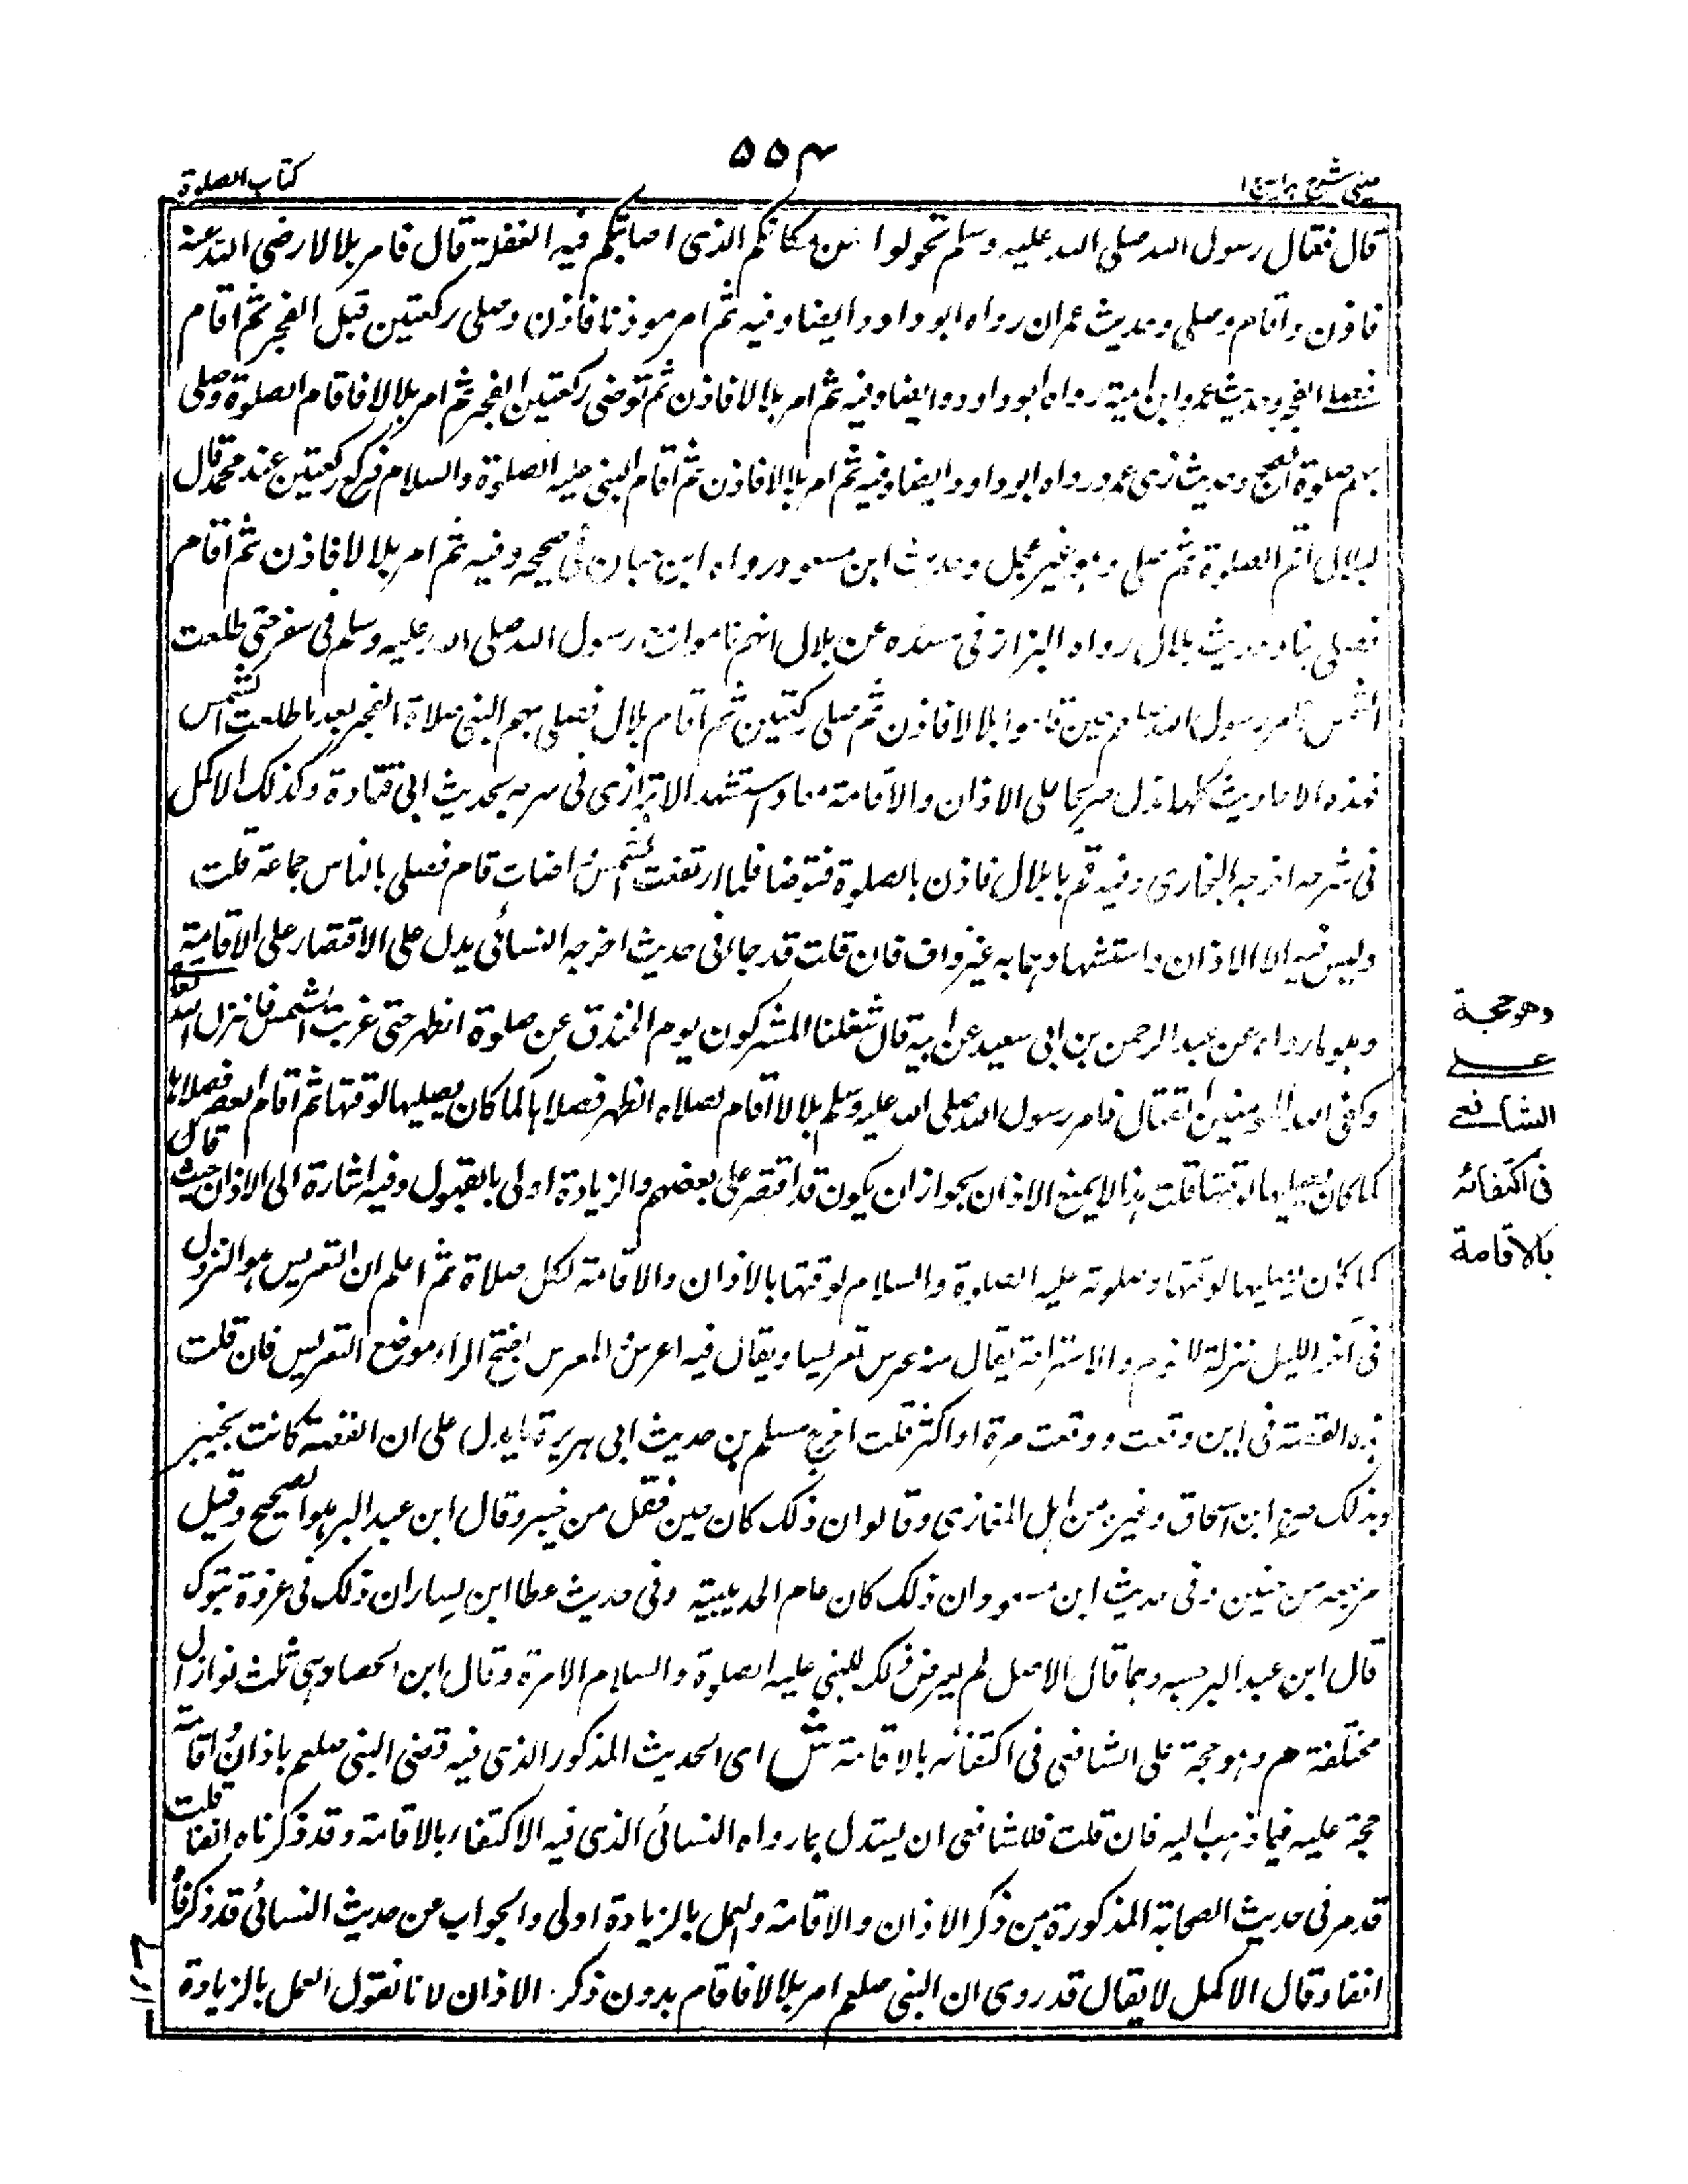 ٥٥٤
كتاب الصلوة
عینی شرح ہدایہ ج ١
قال فقال رسول الله صلى الله عليه وسلم تحولوا عن مكانكم الذى اصابتكم فيه الغفلة قال فامر بلالا رضى الله عنه
فاذن واقام وصلى وحديث عمران رواه ابو داود ايضا وفيه ثم امر موذنا فاذن وصلى ركعتين قبل الفجر ثم اقام
فصلى الفجر وحديث عمرو ابن امية رواه ابو داود ايضا وفيه ثم امر بلالا فاذن ثم توضى ركعتين الفجر ثم امر بلالا فاقام الصلوة وصلى
بهم صلوة الصبح وحديث ذى مخبر رواه ابو داود ايضا وفيه ثم امر بلالا فاذن ثم اقام النبى عليه الصلوة والسلام فركع ركعتين عند محمد قال
لبلال اقم الصلوة ثم صلى وهو غير عجل وحديث ابن مسعود رواه ابن حبان فى صحيحه وفيه ثم امر بلالا فاذن ثم اقام
فصلى بنا وحديث بلال رواه البزار فى مسنده عن بلال انهم ناموا مع رسول الله صلى الله عليه وسلم فى سفر حتى طلعت
الشمس فامر رسول الله صلعم حين قاموا بلالا فاذن ثم صلى ركعتين ثم اقام بلال فصلى بهم النبى صلاة الفجر بعد ما طلعت الشمس
فهذه الاحاديث كلها تدل صريحا على الاذان والاقامة معا واستشهد الاترازى فى شرحه بحديث ابى قتادة وكذلك الاكمل
فى شرحه اخرجه البخارى وفيه قم يا بلال فاذن بالصلوة فتوضا فلما ارتفعت الشمس واضات قام فصلى بالناس جماعة قلت
وليس فيه الا الاذان واستشهادهما به غير واف فان قلت قد جاء فى حديث اخرجه النسائى يدل على الاقتصار على الاقامة
وهو ما رواه عن عبد الرحمن بن ابى سعيد عن ابيه قال شغلنا المشركون يوم الخندق عن صلوة الظهر حتى غربت الشمس فانزل الله تعالى
وكفى الله المومنين القتال فامر رسول الله صلى الله عليه وسلم بلالا اقام لصلاة الظهر فصلاها كما كان يصليها لوقتها ثم اقام العصر فصلاها
كما كان يصليها لوقتها قلت هذا لا يمنع الاذان بجواز ان يكون قد اقتصر على بعضهم والزيادة اولى بالقبول وفيه اشارة الى الاذان حيث قال
كما كان يصليها لوقتها وصلوته عليه الصلوة والسلام لوقتها بالاذان والاقامة لكل صلاة ثم اعلم ان التعريس هو النزول
فى آخر الليل نزلة للنوم والاستراحة يقال منه عرس تعريسا ويقال فيه اعرس والمعرس بفتح الراء موضع التعريس فان قلت
هذه القصة فى اين وقعت ووقعت مرة او اكثر قلت اخرج مسلم من حديث ابى هريرة ما يدل على ان القصة كانت بخيبر
وبذلك صرح ابن اسحاق وغيره من اهل المغازى وقالوا ان ذلك كان حين فقل من خيبر وقال ابن عبد البر هو الصحيح وقيل
مرجعه من حنين وفى حديث ابن مسعود ان ذلك كان عام الحديبية وفى حديث عطا ابن يسار ان ذلك فى غزوة تبوك
قال ابن عبد البر حسبه وهما قال الاصل لم يعرض ذلك للنبى عليه الصلوة والسلام الا مرة وقال ابن الحصار هى ثلث نوازل
مختلفة م وهو حجة على الشافعى فى اكتفائه بالاقامة ش اى الحديث المذكور الذى فيه قضى النبى صلعم باذان واقامة
حجة عليه فيما ذهب اليه فان قلت فللشافعى ان يستدل بما رواه النسائى الذى فيه الاكتفاء بالاقامة وقد ذكرناه انفا قلت
قد مر فى حديث الصحابة المذكورة من ذكر الاذان والاقامة والعمل بالزيادة اولى والجواب عن حديث النسائى قد ذكرناه
انفا وقال الاكمل لا يقال قد روى ان النبى صلعم امر بلالا فاقام بدون ذكر الاذان لانا نقول العمل بالزيادة
وهو حجة
على
الشافعى
فى اكتفائه
بالاقامة